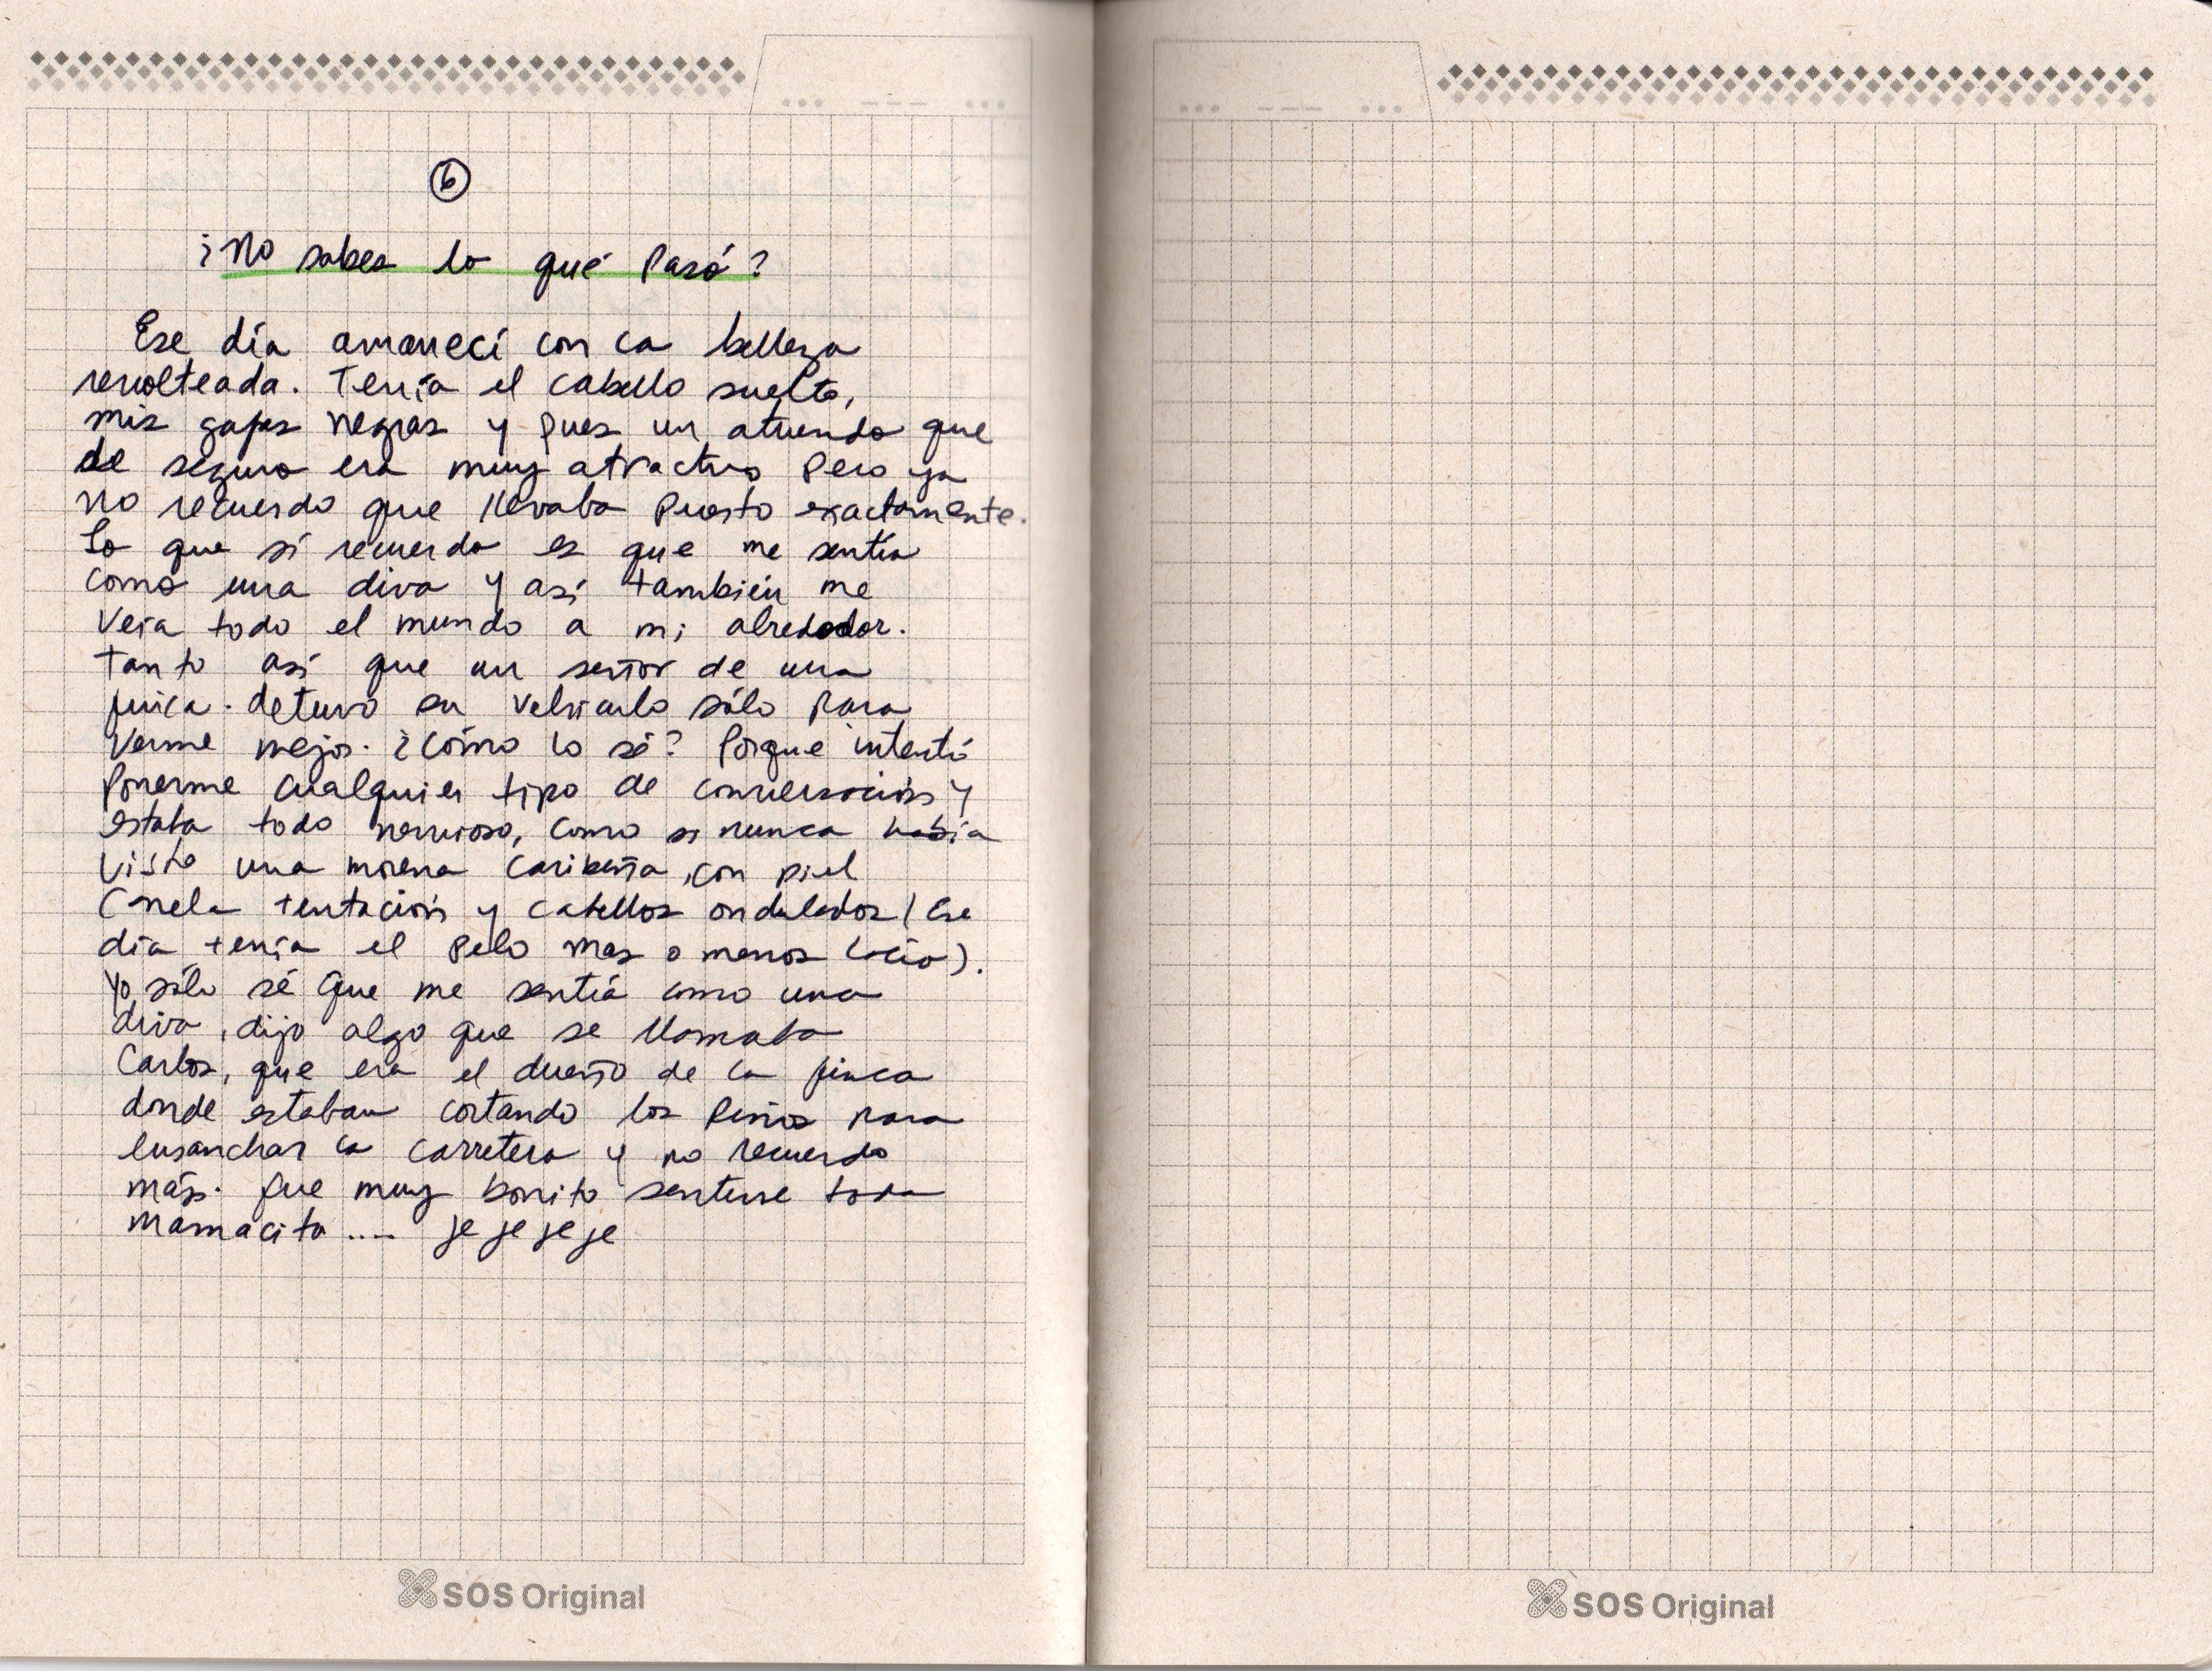 6
¿No sabes lo qué pasó?
Ese día amanecí con la belleza
revolteada. Tenía el cabello suelto,
mis gafas negras y pues un atuendo que
de seguro era muy atractivo pero ya
no recuerdo que llevaba puesto exactamente.
Lo que sí recuerdo es que me sentía
como una diva y así también me
veía todo el mundo a mi alrededor.
Tanto así que un señor de una
finca. detuvo su vehículo sólo para
verme mejor. ¿Cómo lo sé? Porque intentó
ponerme cualquier tipo de conversación y
estaba todo nervioso, como si nunca había
visto una morena caribeña, con piel
canela tentación y cabellos ondulados (Ese
día tenía el pelo mas o menos lacio).
Yo sólo sé que me sentía como una
diva, dijo algo que se llamaba
Carlos, que era el dueño de la finca
donde estaban cortando los pinos para
ensanchar la carretera y no recuerdo
más. Fue muy bonito sentirse toda
mamacita .... je je je je
SOS Original
SOS Original